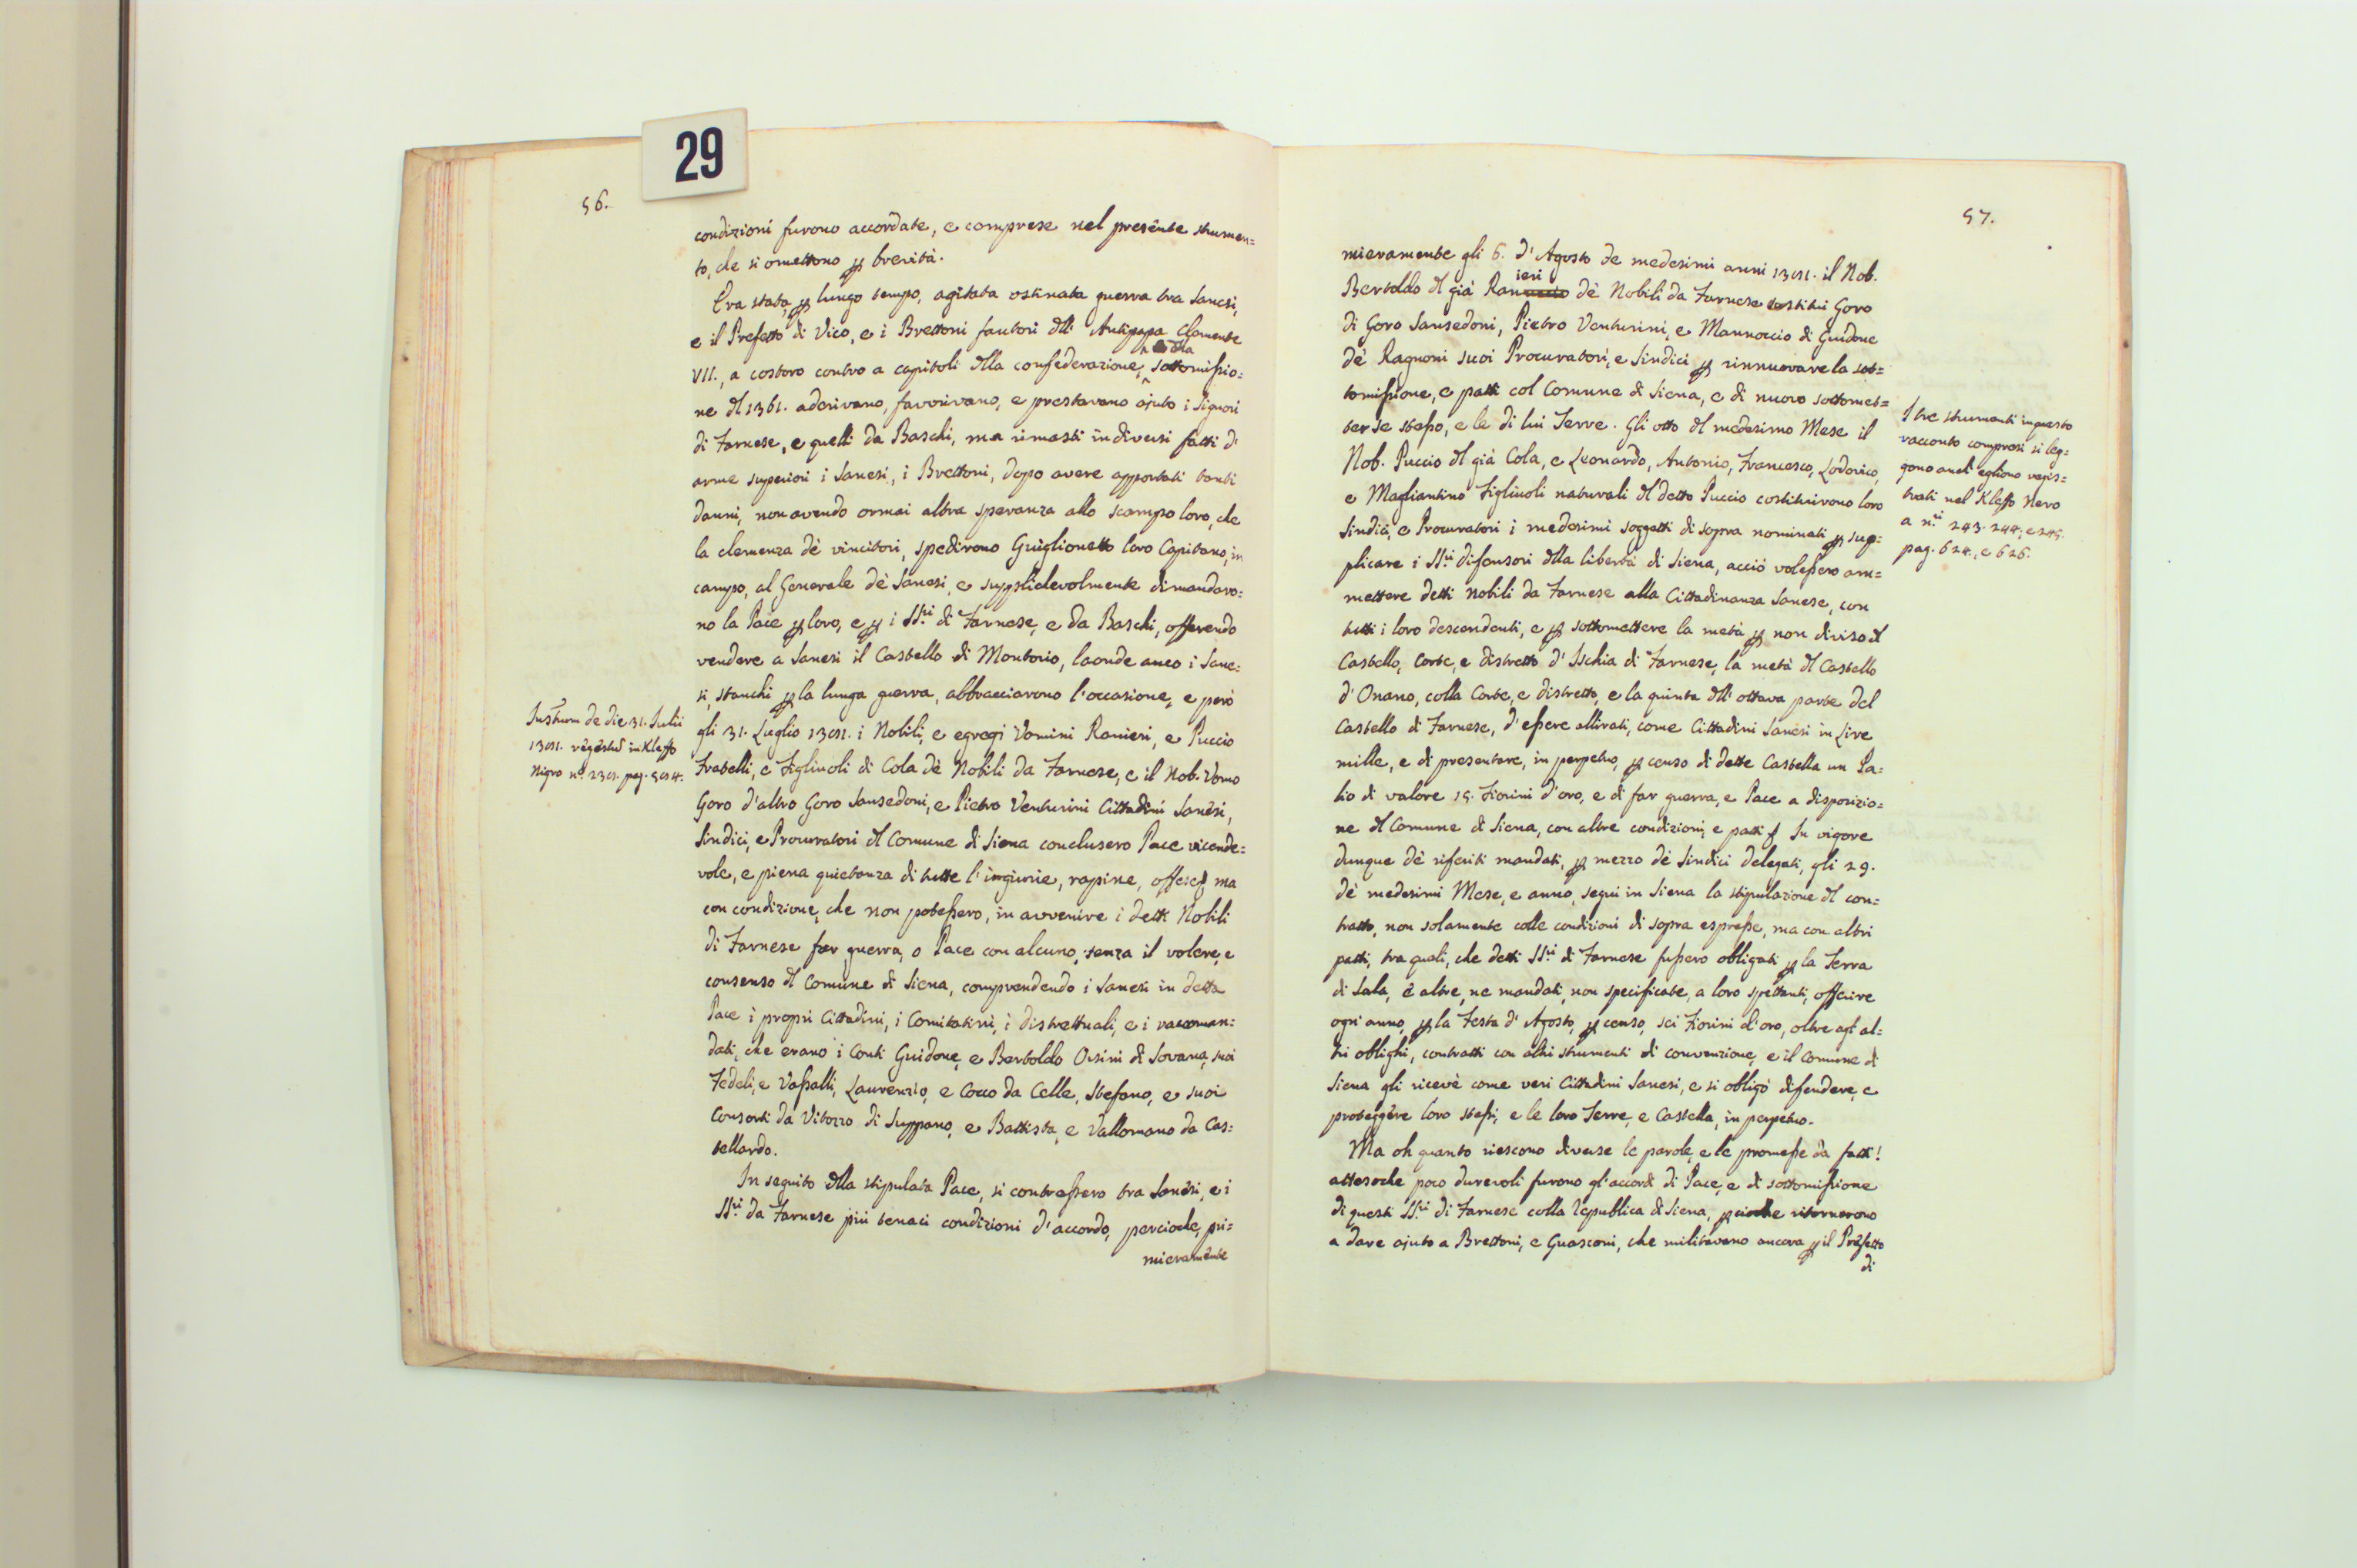 29
56.
condizioni furono accordate, e comprese nel presente strumen=
to, che si omettono p brevità.
Era stata, p lungo tempo, agitata ostinata guerra tra Sanesi,
e il Prefetto di Vico, e i Brettoni fautori dll' Antipapa Clemente
VII., a costoro contro a capitoli dlla confederazione, e dlla sottomissio=
ne dl 1361. aderivano, favorivano, e prestavano ajuto i Signori
di Farnese, e quelli da Baschi, ma rimasti in diversi fatti d'
arme superiori i Sanesi, i Brettoni, dopo avere apportati tanti
danni, non avendo ormai altra speranza allo scampo loro, che
la clemenza dè vincitori, spedirono Guiglionetto loro Capitano, in
campo, al Generale dè Sanesi, e supplichevolmente dimandaro=
no la Pace p loro, e p i SS.ri di Farnese, e da Baschi, offerendo
rendere a Sanesi il Castello di Montorio, laonde anco i Sane=
si, stanchi p la lunga guerra, abbracciarono l'occasione, e però
gli 31. Luglio 1391. i Nobili, e egregi Uomini Ranieri, e Puccio
Fratelli, e Figliuoli di Cola dè Nobili da Farnese, e il Nob. Uomo
Goro d'altro Goro Sansedoni, e Pietro Venturini Cittadini Sanesi,
Sindici, e Procuratori dl Comune di Siena conclusero Pace vicende=
vole, e piena quietanza di tutte l'ingiurie, rapine, offese ma
con condizione, che non potessero, in avvenire i detti Nobili
di Farnese far guerra, o Pace con alcuno, senza il volere, e
consenso dl Comune di Siena, comprendendo i Sanesi in detta
Pace i propri Cittadini, i Comitatini, i distrettuali, e i raccoman=
dati, che erano i Conti Guidone, e Bertoldo Orsini di Sovana, suoi
Fedeli, e Vassalli, Laurenzio, e Cocco da Celle, Stefano, e suoi
Consorti da Vitozzo di Suppano, e Battista, e Vallomano da Cas=
tellardo.
In seguito dlla stipulata Pace, si contrassero tra Sanesi, e i
SS.ri da Farnese più tenaci condizioni d'accordo, perciocche, pri=
mieramente
Instrum de die 31. Julii
1391. regestud in Kleffo
Nigro n.o 239. pag. 594.
57.
mieramente gli 6. d'Agosto de medesimi anni 1391. il Nob.
Bertoldo dl già Ranieri dè Nobili da Farnese costitui Goro
di Goro Sansedoni, Pietro Venturini, e Mannoccio di Guidone
dè Ragnoni suoi Procuratori, e Sindici p rinnuovare la sot=
tomissione, e patti col Comune di Siena, e di nuovo sottomet=
ter se stesso, e le di lui Terre. Gli otto dl medesimo Mese il
Nob. Puccio dl già Cola, e Leonardo, Antonio, Francesco, Lodovico,
e Magliantino Figliuoli naturali dl detto Puccio costituirono loro
Sindici, e Procuratori i medesimi soggetti di sopra nominati p sup=
plicare i SS.ri difensori dlla libertà di Siena, acciò volessero am=
mettere detti Nobili da Farnese alla Cittadinanza Sanese, con
tutti i loro descendenti, e p sottomettere la metà p non diviso dl
Castello, Corte, e distretto d'Ischia di Farnese, la metà dl Castello
d'Onano, colla Corte, e distretto, e la quinta dll'ottava parte del
Castello di Farnese, d'essere allirati, come Cittadini Sanesi in Lire
mille, e di presentare, in perpetuo, p censo di dette Castella un Pa=
lio di valore 15. Fiorini d'oro, e di far guerra, e Pace a disposizio=
ne dl Comune di Siena, con altre condizioni, e patti In vigore
dunque dè riferiti mandati, p mezzo dè Sindici delegati, gli 29.
dè medesimi Mese, e anno, segui in Siena la stipulazione dl con=
tratto, non solamente colle condizioni di sopra espresse, ma con altri
patti, tra quali, che detti SS.ri di Farnese fussero obligati p la Terra
di Sala, e altre, ne mandati, non specificate, a loro spettanti, offerire
ogni anno, p la Festa d'Agosto, p censo, sei Fiorini d'oro, oltre agl'al=
tri oblighi, contratti con altri strumenti di convenzione, e il Comune di
Siena gli ricevè come veri Cittadini Sanesi, e si obligò difendere, e
proteggere loro stessi, e le loro Terre, e Castella, in perpetuo.
Ma oh quanto riescono diverse le parole, e le promesse da fatti!
attesoche poco durevoli furono gl'accordi di Pace, e di sottomissione
di questi SS.ri di Farnese colla Republica di Siena, pcioche ritornarono
a dare ajuto a Brettoni, e Guasconi, che militavano ancora p il Prefetto
di
I tre strumenti in questo
racconto compresi si leg=
gono anch'eglino regis=
trati nel Kleffo Nero
a n.ri 243. 244, e 245.
pag. 624., e 626.